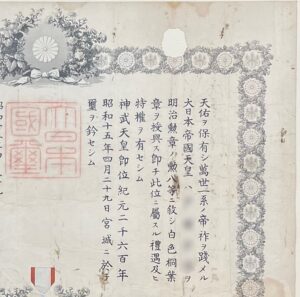 天佑ヲ保有シ萬世一系ノ帝祚ヲ踐メル
大日本帝國天皇ハ
明治勲章ノ勲八等ニ敘シ白色桐葉
章ヲ授與ス即チ此位ニ屬スル禮遇及ヒ
特權ヲ有セシム
神武天皇即位紀元二千六百年
昭和十五年四月二十九日宮城ニ於テ
璽ヲ鈐セシム
大日本
國璽